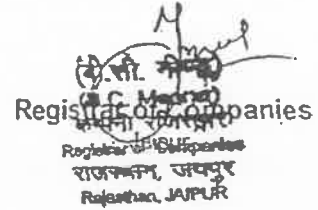 (बी.सी. मीणा)
(B.C. Meena)
Registrar of Companies
कम्पनी रजिस्ट्रार
Registrar of Companies
राजस्थान, जयपुर
Rajasthan, JAIPUR